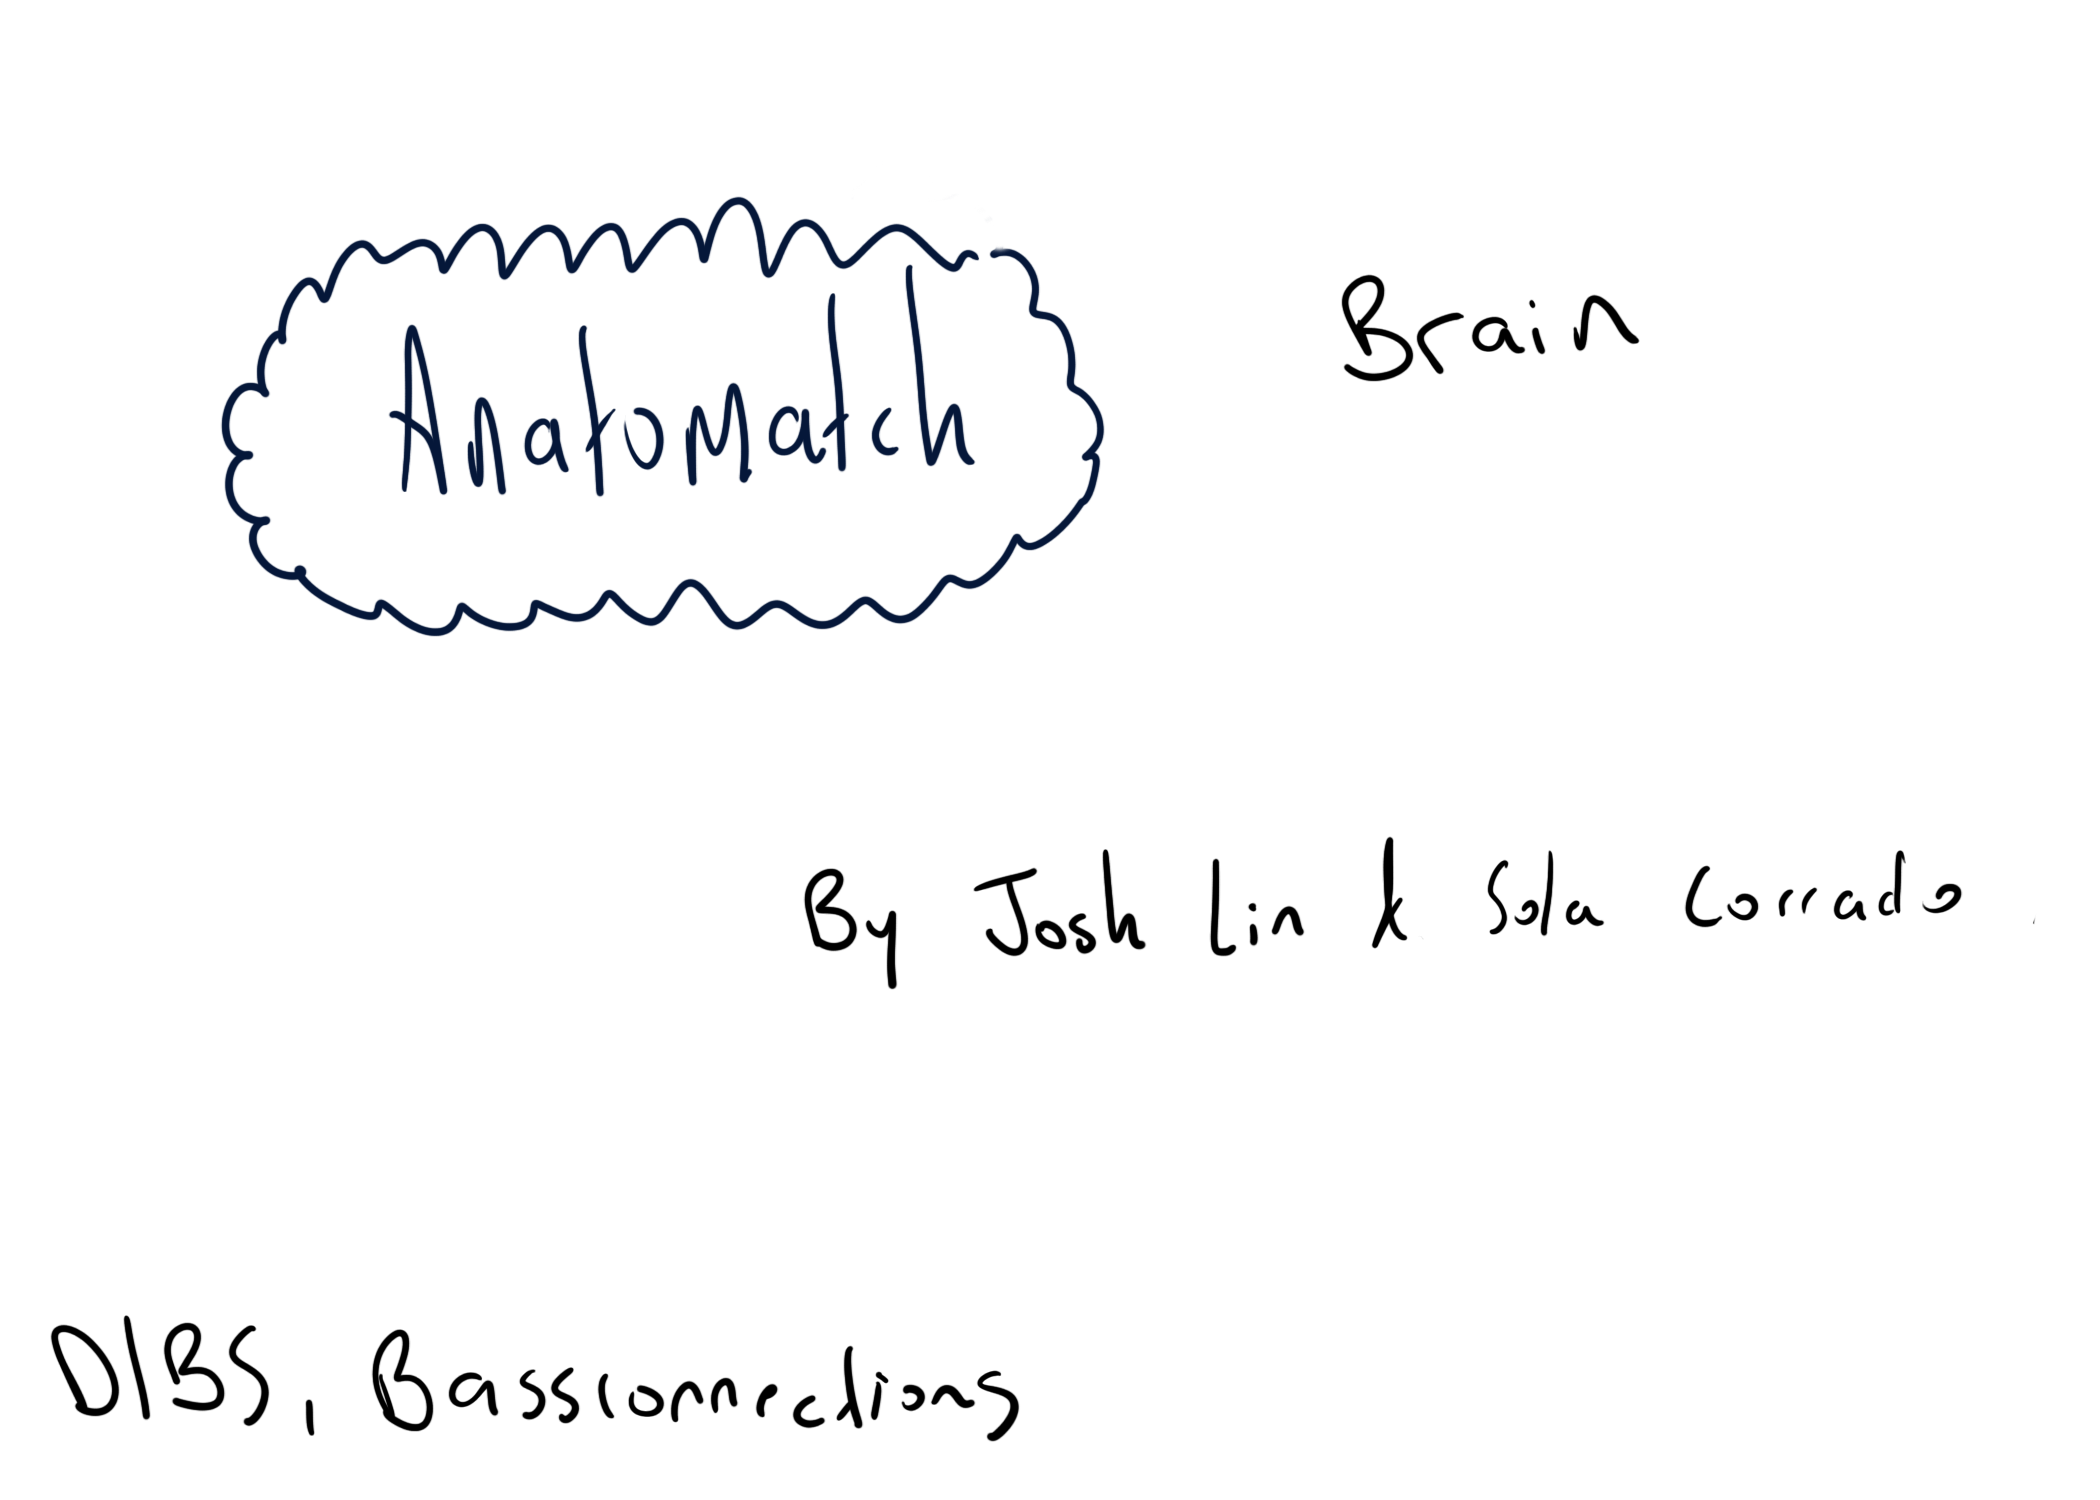 Anatomatch
Brain
By Josh Lin & Sola Corrado
DIBS, Bassconnections